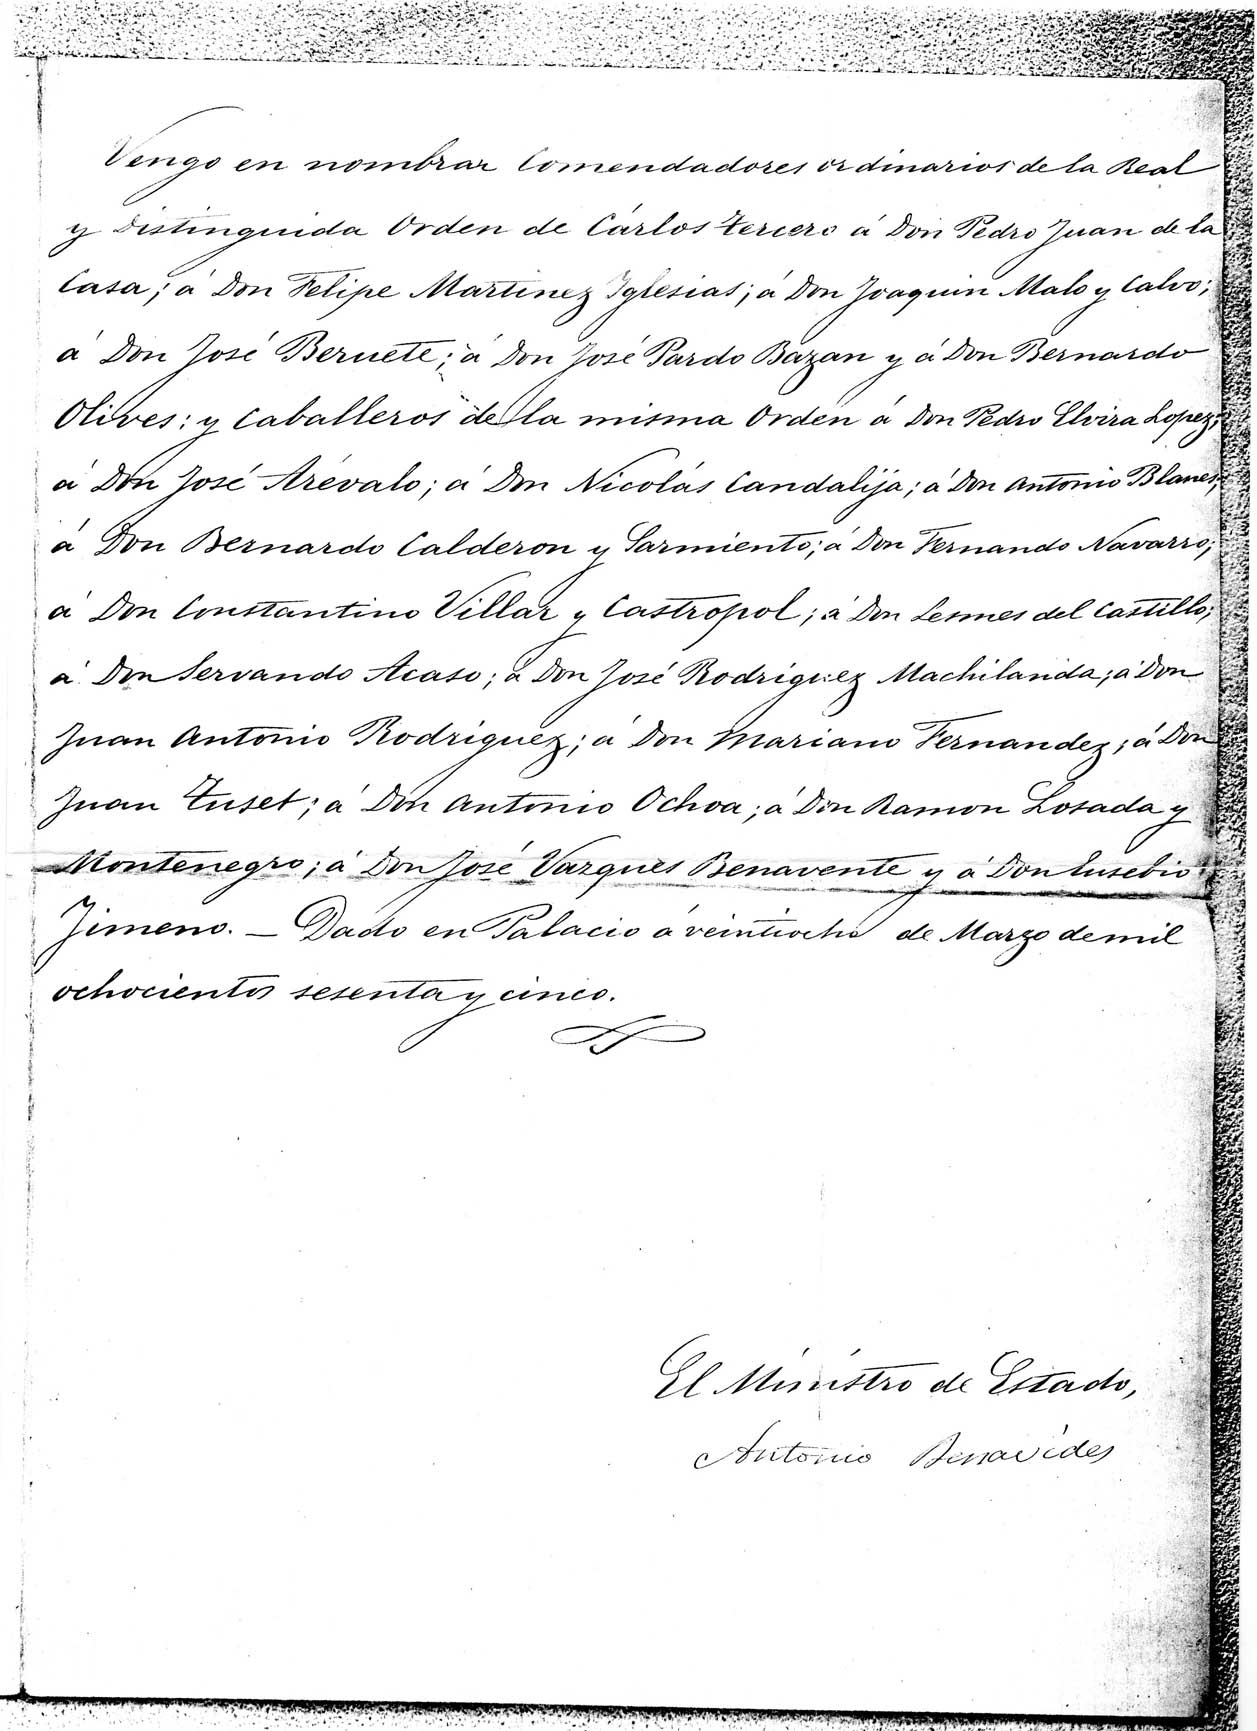 Vengo en nombrar Comendadores ordinarios de la Real
y distinguida Orden de Cárlos tercero á Don Pedro Juan de la
Casa; á Don Felipe Martinez Iglesias; á Don Joaquin Malo y Calvo;
á Don José Beruete; á Don José Pardo Bazan y á Don Bernardo
Olives: y Caballeros de la misma Orden á Don Pedro Elvira Lopez;
á Don José Arévalo; á Don Nicolás Candalija; á Don Antonio Blanes;
á Don Bernardo Calderon y Sarmiento; á Don Fernando Navarro;
á Don Constantino Villar y Castropol; á Don Lesmes del Castillo;
á Don Servando Acaso; á Don José Rodriguez Machilanda; á Don
Juan Antonio Rodriguez; á Don Mariano Fernandez; á Don
Juan Tuset; á Don Antonio Ochoa; á Don Ramon Losada y
Montenegro; á Don José Vazques Benavente y á Don Eusebio
Jimeno. — Dado en Palacio á veintiocho de Marzo de mil
ochocientos sesenta y cinco.
El Ministro de Estado,
Antonio Benavides